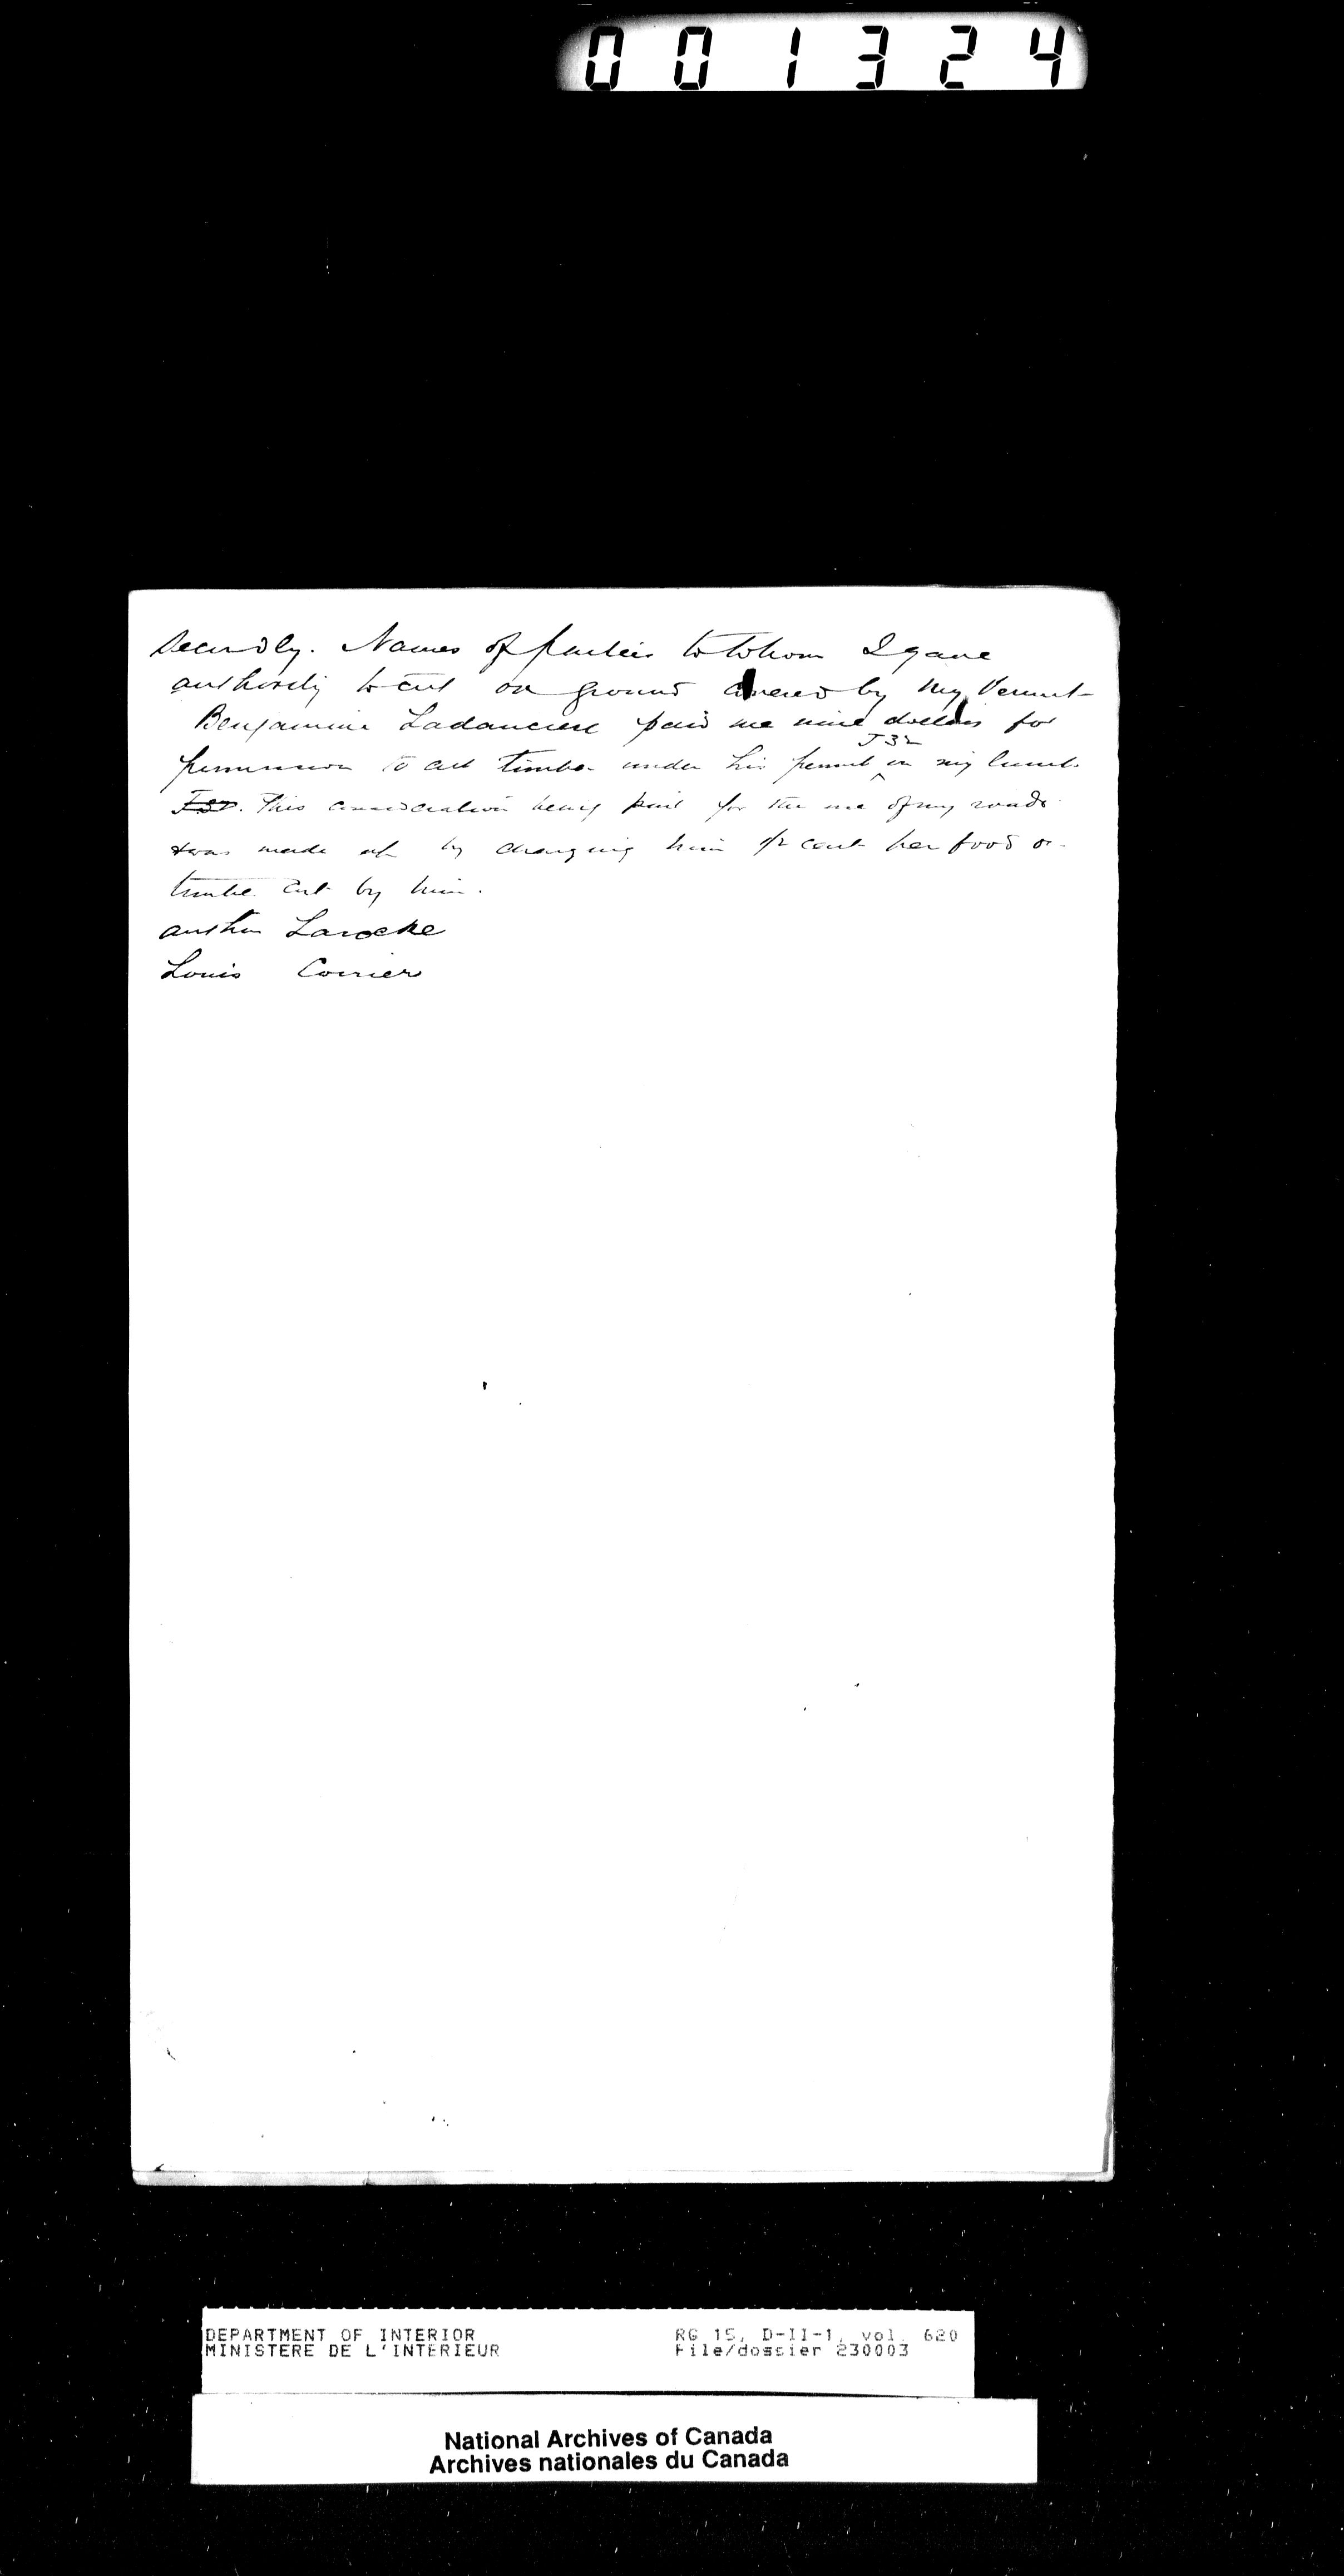 001324
Secondly. Names of parties to whom I gave
authority to cut on ground covered by my Permit
Benjamine paid me nine dollars for
permission to cut timber under his permit J32 on my limits
This consideration being paid for the use of my roads
& was made up by charging him 1/2 cent per foot on
timber cut by him.
Larocke
Louis
DEPARTMENT OF INTERIOR
MINISTERE DE L'INTERIEUR
RG 15, D-II-1, vol. 620
File/dossier 230003
National Archives of Canada
Archives nationales du Canada